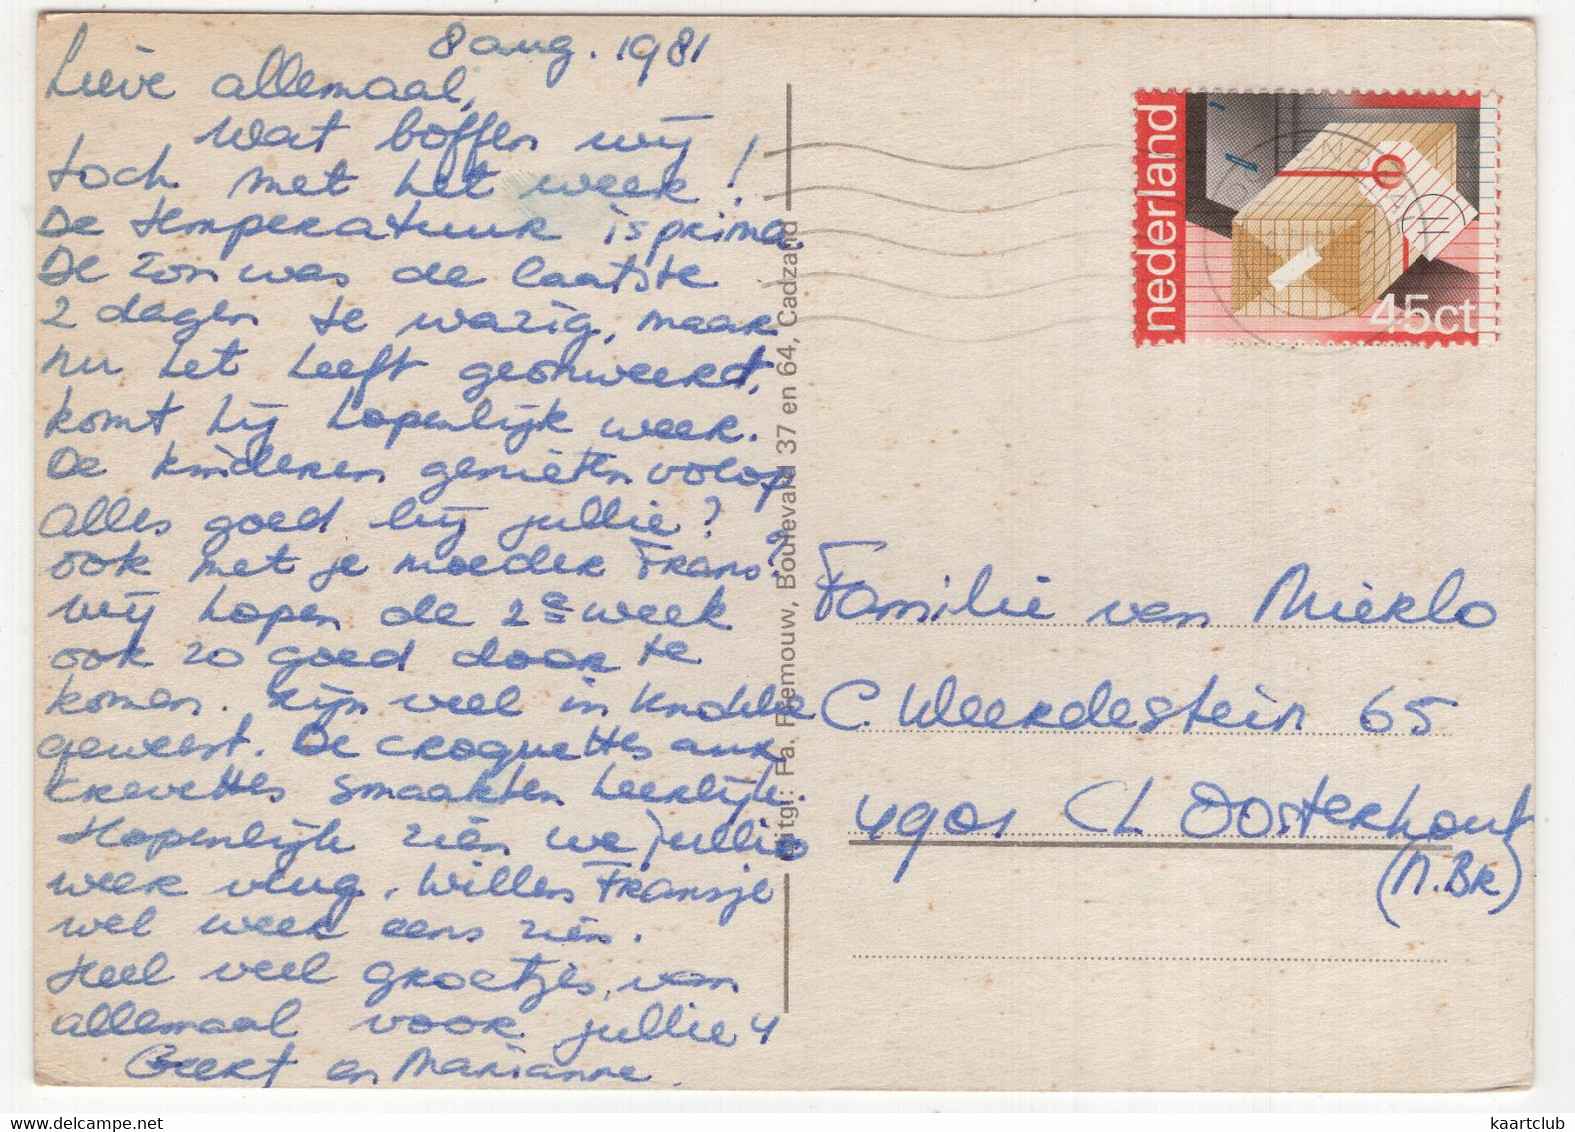 8 aug. 1981
Lieve allemaal,
wat boffen wij
toch met het weer!
De temperatuur is prima
De zon was de laatste
2 dagen te wazig, maar
nu het heeft geonweerd,
komt hij hopenlijk weer.
De kinderen genieten volop
Alles goed bij jullie?
ook met je moeder Frans?
Wij hopen de 2e week
ook zo goed door te
komen. Zijn veel in Knokke
geweest. De croquettes aux
crevettes smaakten heerlijk.
Hopenlijk zien we jullie
weer vlug. Willen Fransje
wel weer eens zien.
Heel veel groetjes, van
allemaal voor jullie 4
Geert en Marianne.
Uitg.: Fa. Fremouw, Boulevard 37 en 64, Cadzand
nederland
45ct
Familie van Mierlo
C. Weerdestein 65
4901 CL Oosterhout
(N.BR)
kaartclub